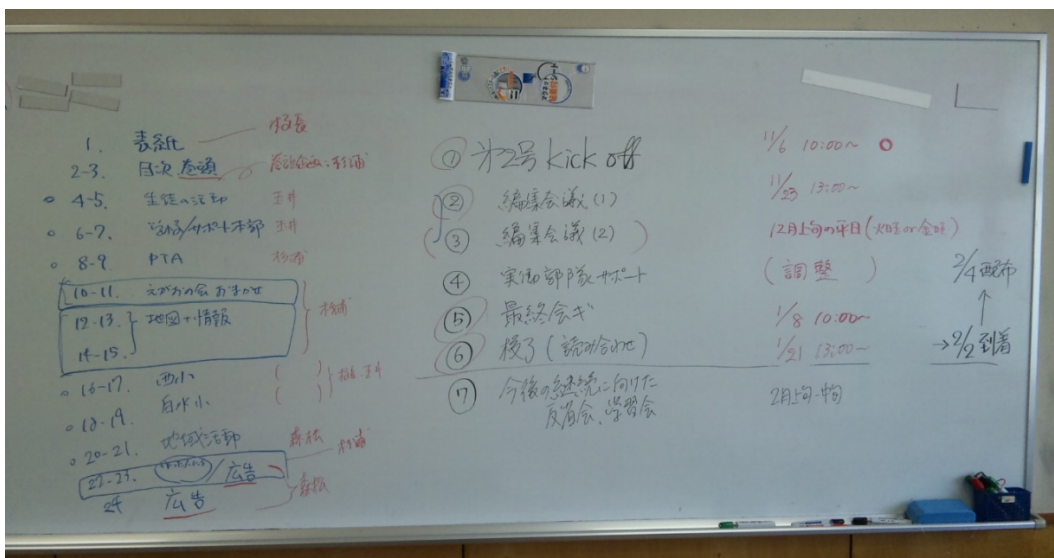 1. 表紙 校長
2-3. 目次 巻頭
4-5. 生徒の活動 玉井
6-7. 学校/サポート本部 玉井
8-9 PTA 杉浦
10-11. えがおの会 おまかせ
12-13. 地図+情報 杉浦
14-15.
16-17. 西小 ( )
18-19. 白水小 ( )
20-21. 地域活動 森松
22-23. / 広告 杉浦
24 広告 森松
① 第2号 Kick off 11/6 10:00~
② 編集会議(1) 11/23 13:00~
③ 編集会議(2) 12月上旬の平日(火曜or金曜)
④ 実働部隊サポート (調整)
⑤ 最終会ギ 1/8 10:00~
⑥ 校了(読み合わせ) 1/21 13:00~
⑦ 今後の継続に向けた 2月上旬-中旬
反省会、学習会
2/4 配布
↑
→2/2 到着